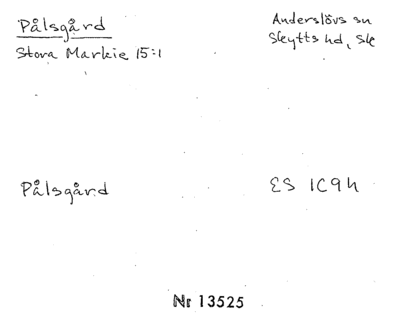 Pålsgård
Stora Markie 15:1
Anderslövs sn
Skytts hd, Sk
Pålsgård
ES 1C9h
Nr 13525